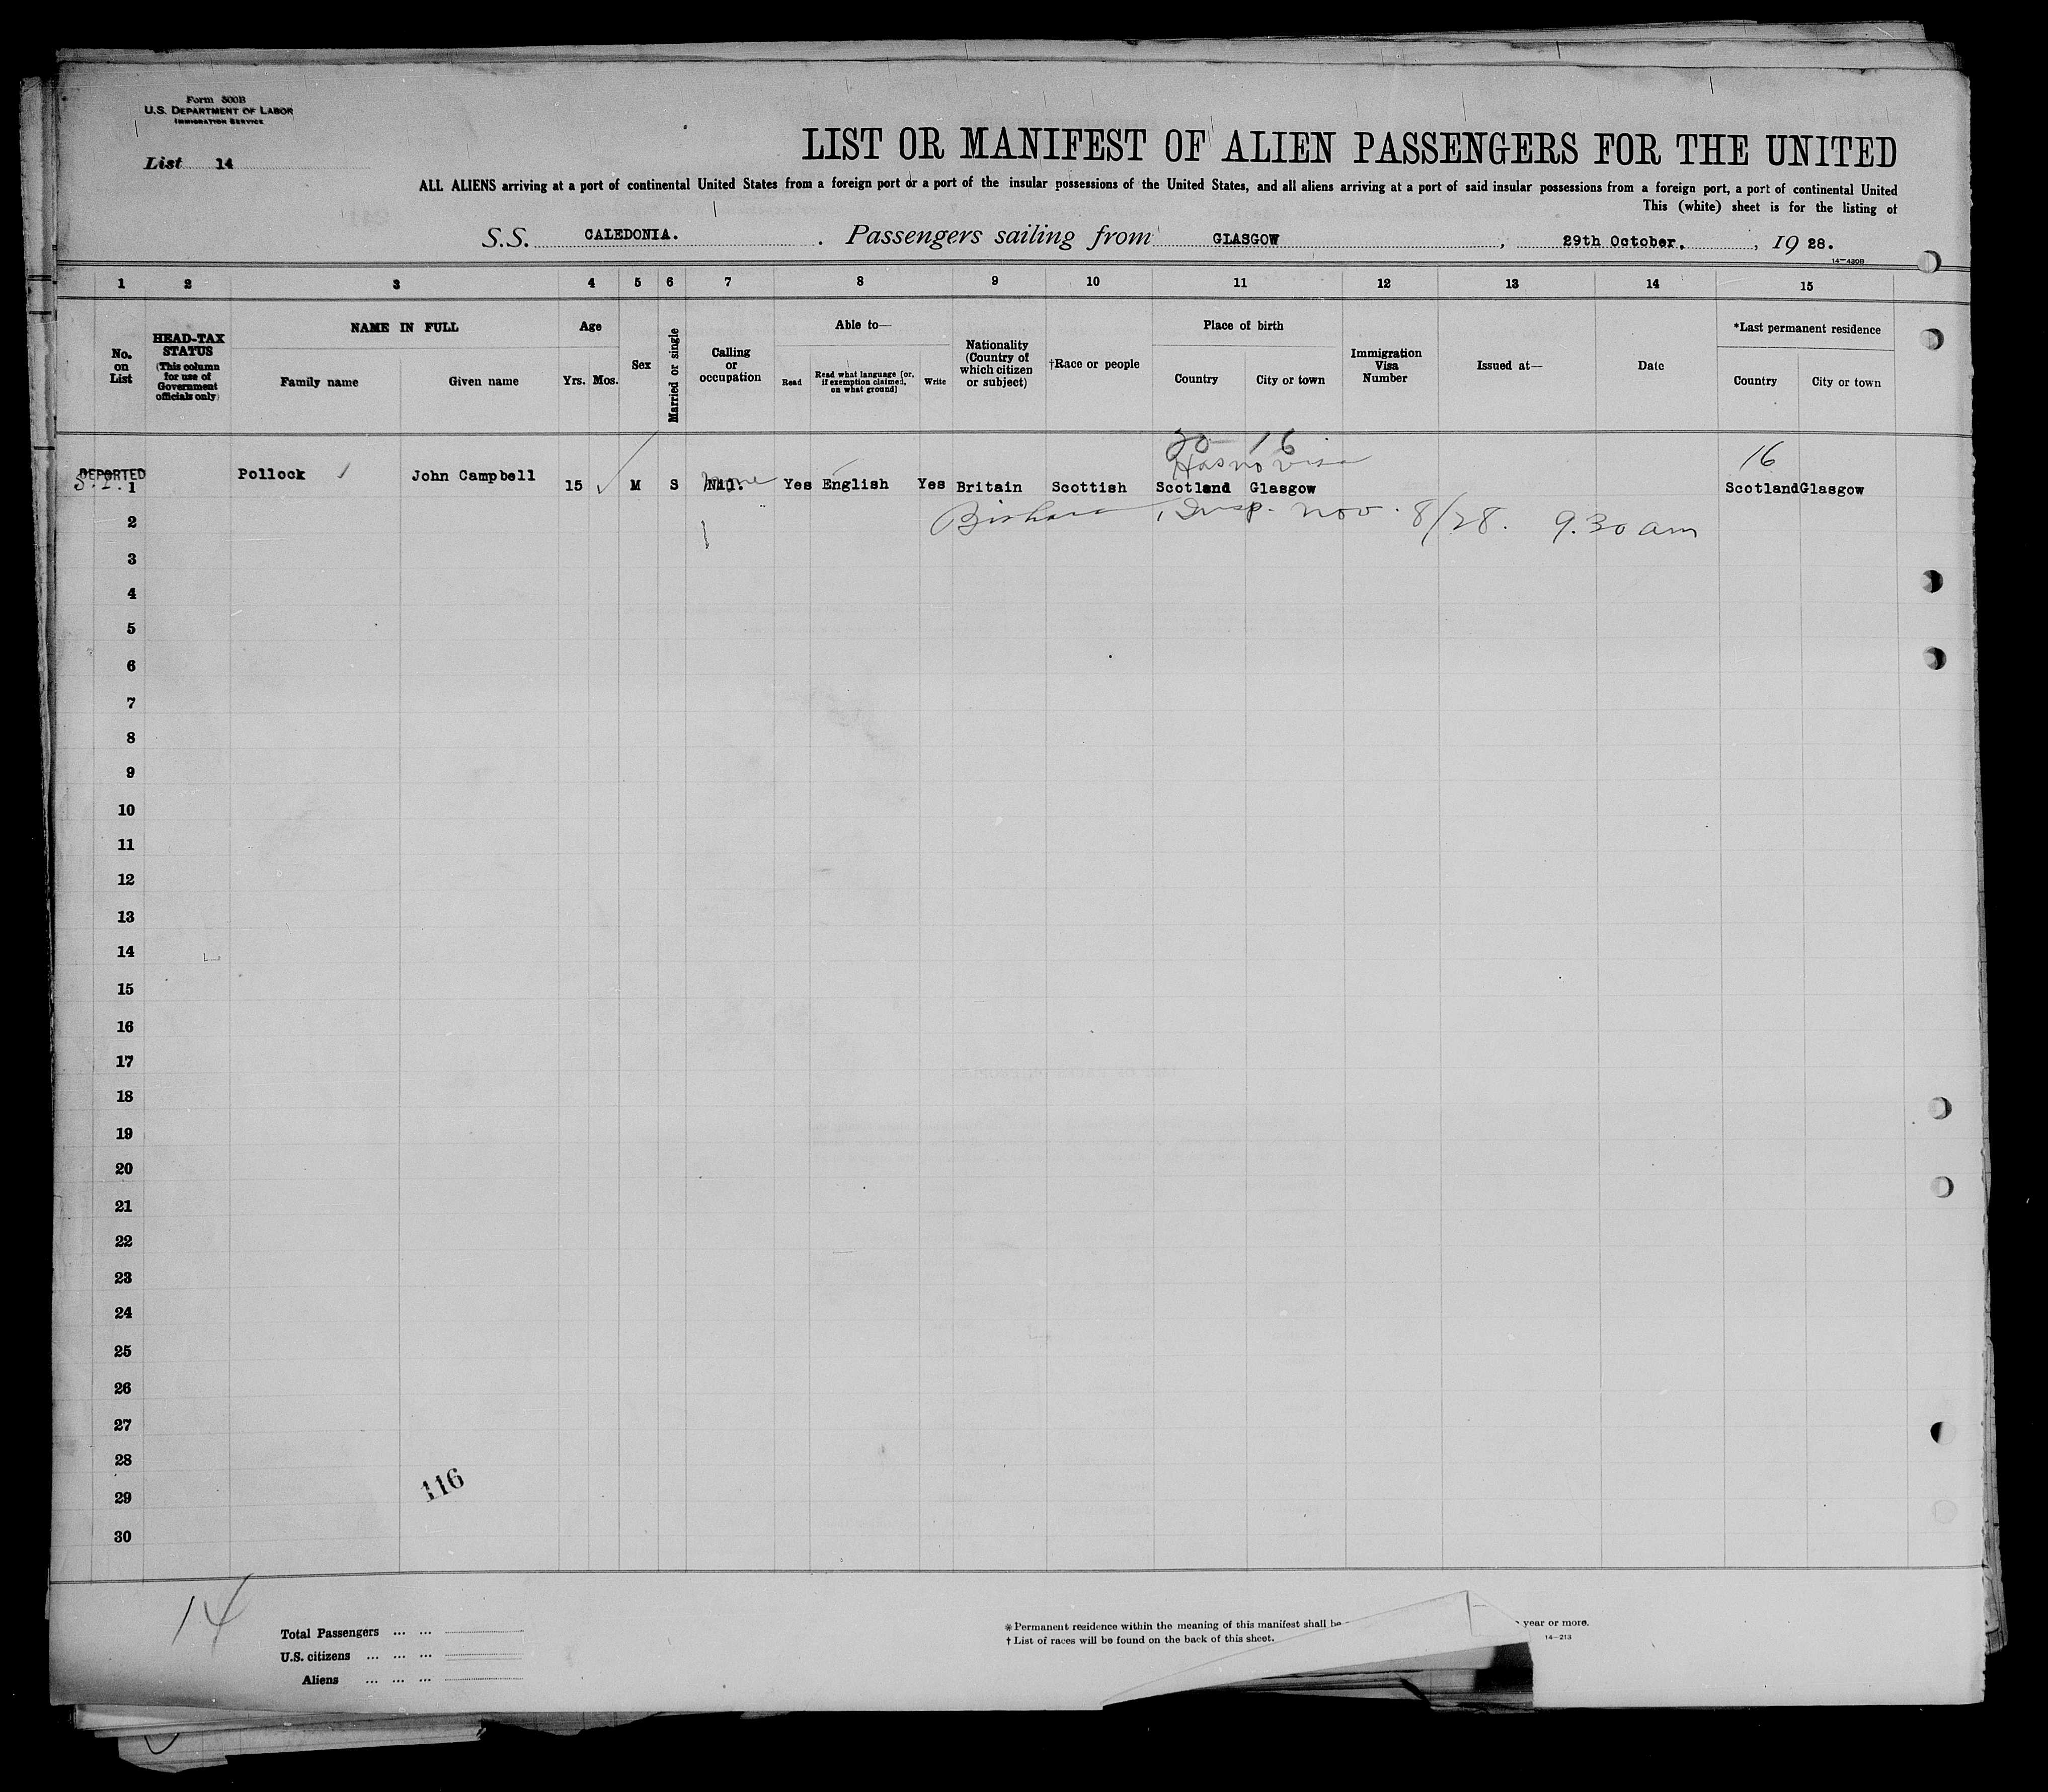 Form 500B
U.S. DEPARTMENT OF LABOR
IMMIGRATION SERVICE
List 14
LIST OR MANIFEST OF ALIEN PASSENGERS FOR THE UNITED
ALL ALIENS arriving at a port of continental United States from a foreign port or a port of the insular possessions of the United States, and all aliens arriving at a port of said insular possessions from a foreign port, a port of continental United
This (white) sheet is for the listing of
S.S. CALEDONIA. . Passengers sailing from GLASGOW , 29th October. , 19 28.
14-430B
1 2 3 4 5 6 7 8 9 10 11 12 13 14 15
No. on List
HEAD-TAX STATUS (This column for use of Government officials only)
NAME IN FULL
Family name Given name
Age
Yrs. Mos.
Sex
Married or single
Calling or occupation
Able to—
Read Read what language [or, if exemption claimed, on what ground] Write
Nationality (Country of which citizen or subject)
†Race or people
Place of birth
Country City or town
Immigration Visa Number
Issued at—
Date
*Last permanent residence
Country City or town
30 16 16
Has no visa
DEPORTED
S.I. 1 Pollock John Campbell 15 M S None Yes English Yes Britain Scottish Scotland Glasgow Scotland Glasgow
2 Insp. Nov. 8/28. 9.30 am
3
4
5
6
7
8
9
10
11
12
13
14
15
16
17
18
19
20
21
22
23
24
25
26
27
28
29
30
116
14
Total Passengers ... ...
U.S. citizens ... ... ...
Aliens ... ... ...
* Permanent residence within the meaning of this manifest shall be year or more.
† List of races will be found on the back of this sheet.
14-213